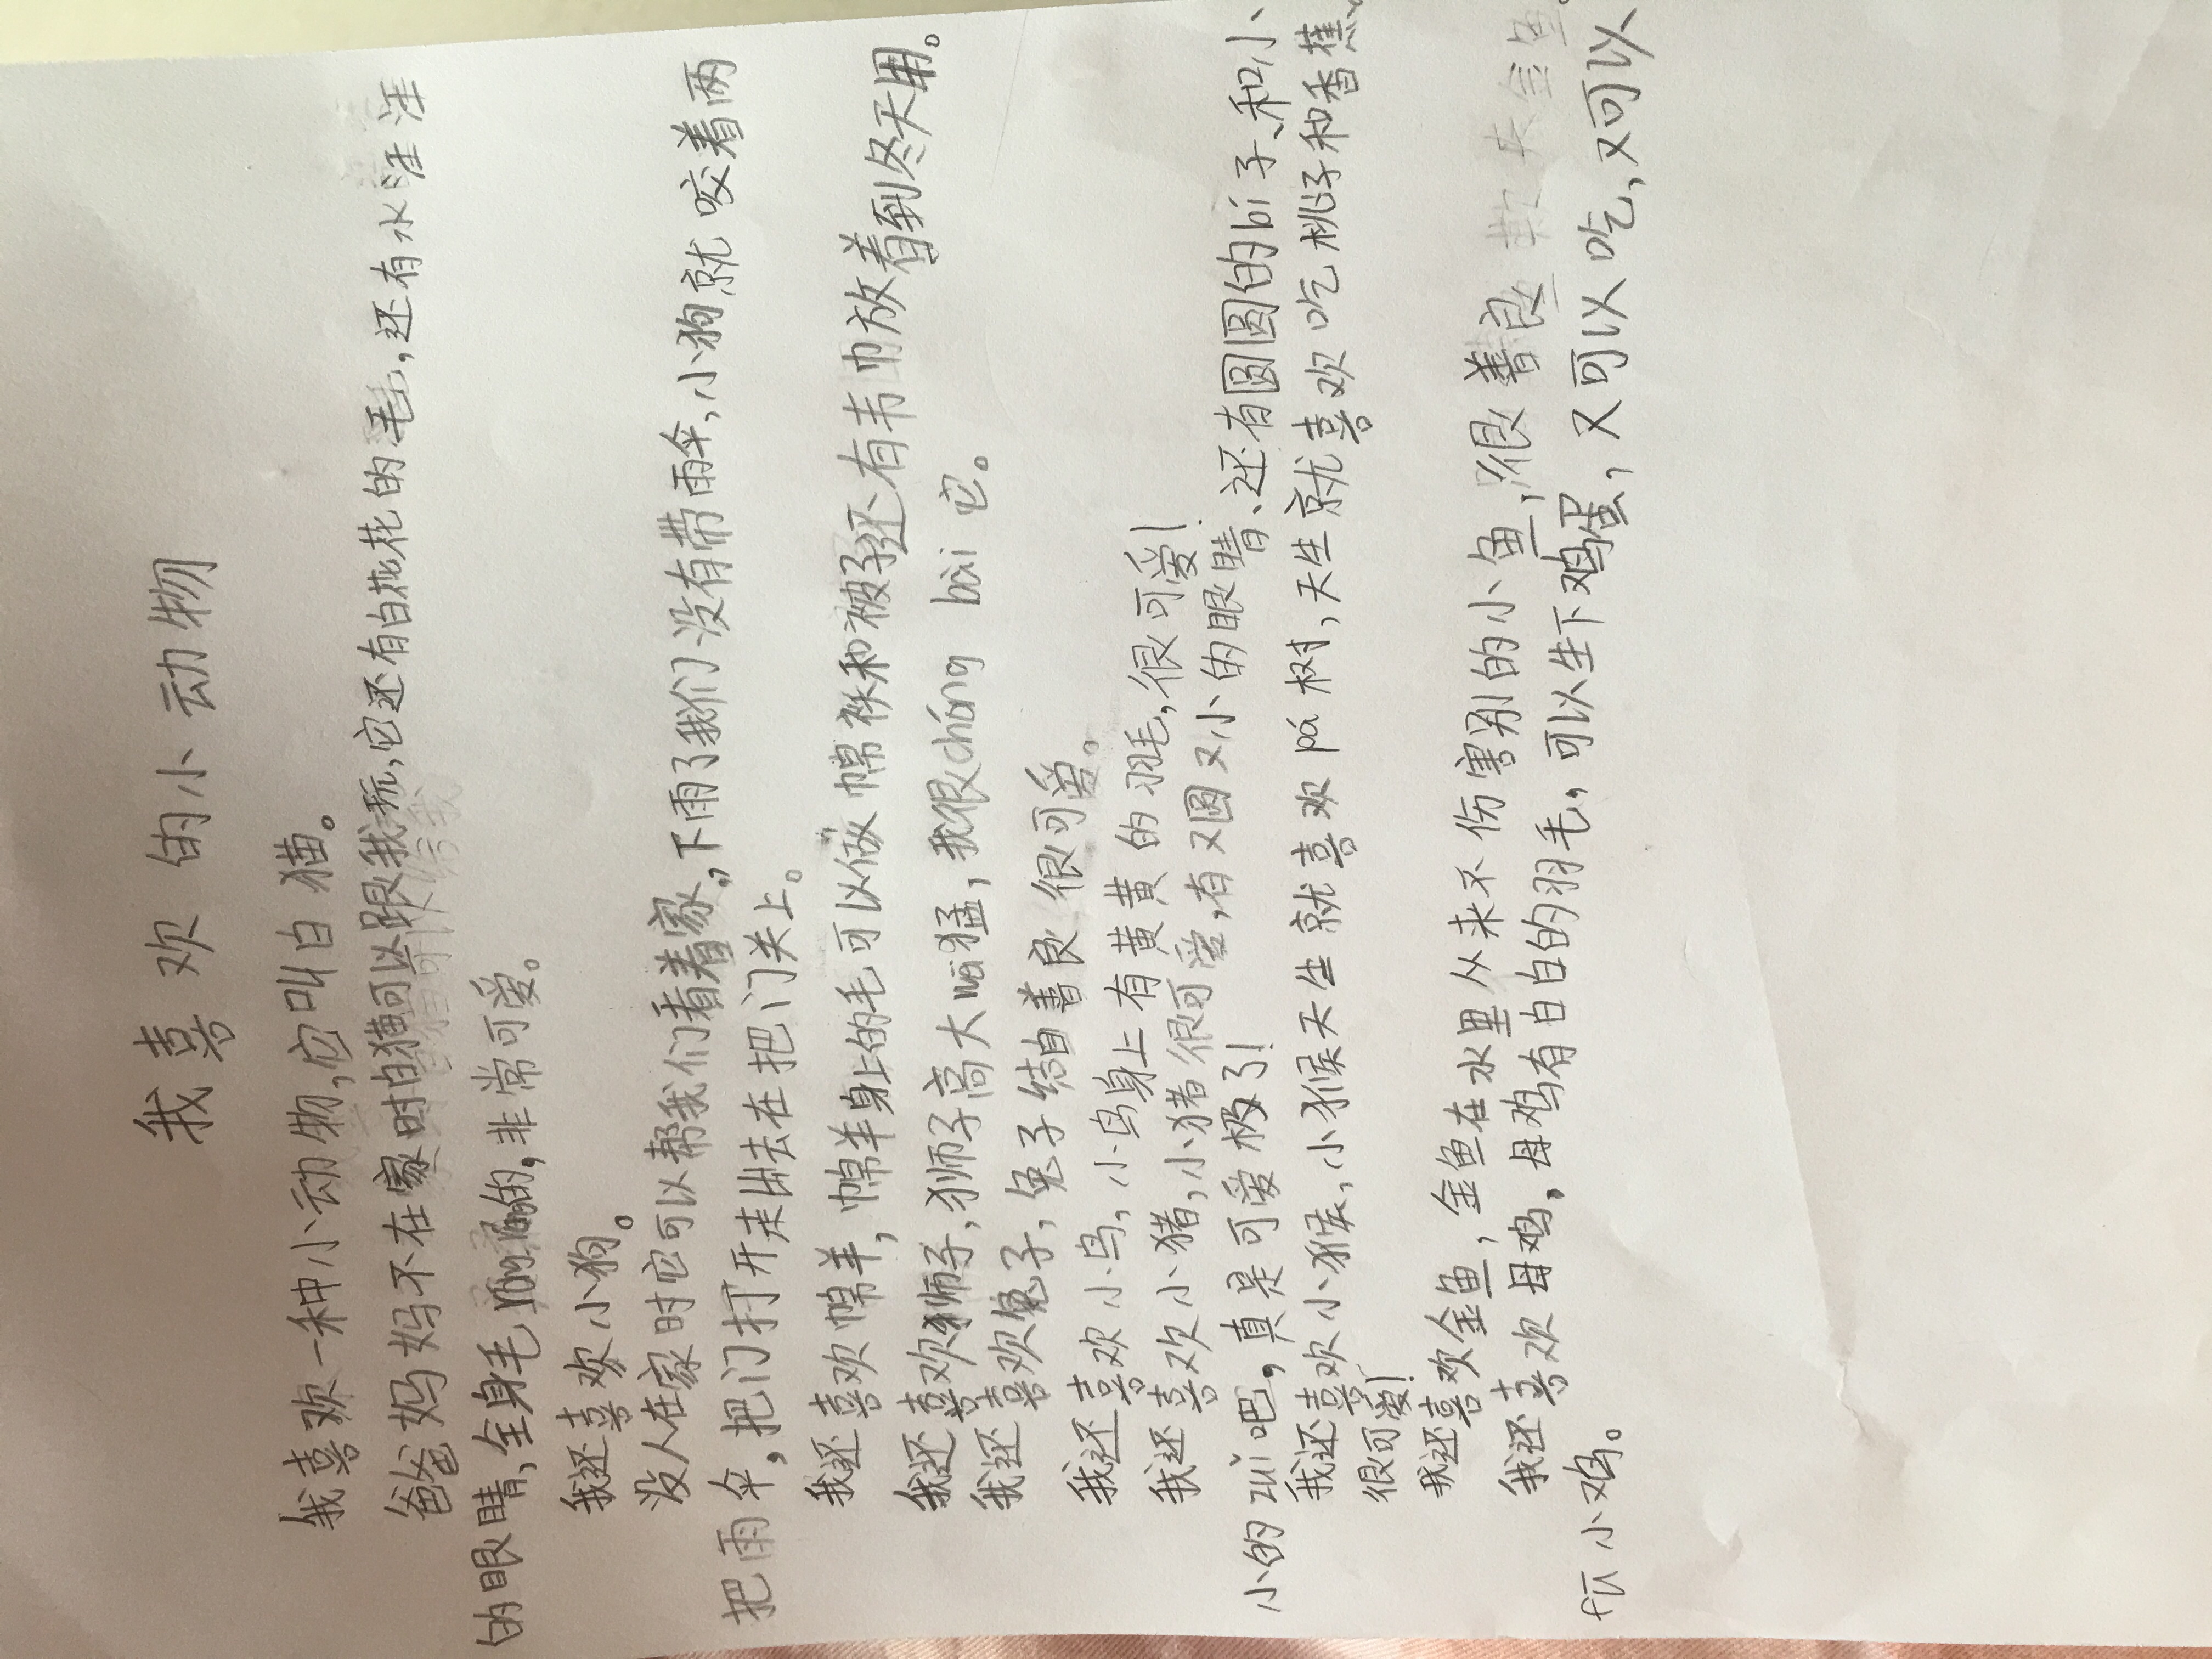 我喜欢的小动物
我喜欢一种小动物,它叫白猫。
爸爸妈妈不在家时白猫可以跟我玩,它还有白花花的毛,还有水汪汪
的眼睛,全身毛的,非常可爱。
我还喜欢小狗。
没人在家时它可以帮我们看着家,下雨了我们没有带雨伞,小狗就咬着两
把雨伞,把门打开走出去在把门关上。
我还喜欢帽羊,帽羊身上的毛可以做帽袄和被子还有韦巾放着到冬天用。
我还喜欢狮子,狮子高大wēi猛,我很chóng bài它。
我还喜欢兔子,兔子结白善良很可爱。
我还喜欢小鸟,小鸟身上有黄黄的羽毛,很可爱!
我还喜欢小猪,小猪很可爱,有又圆又小的眼睛、还有圆圆的bí子、和小、
小的zuǐ吧,真是可爱极了!
我还喜欢小猴,小猴天生就喜欢pá树,天生就喜欢吃桃子和香蕉。
很可爱!
我还喜欢金鱼,金鱼在水里从来不伤害别的小鱼,很善良
我还喜欢母鸡,母鸡有白白的羽毛,可以生下鸡蛋,又可以吃,又可以
fū小鸡。